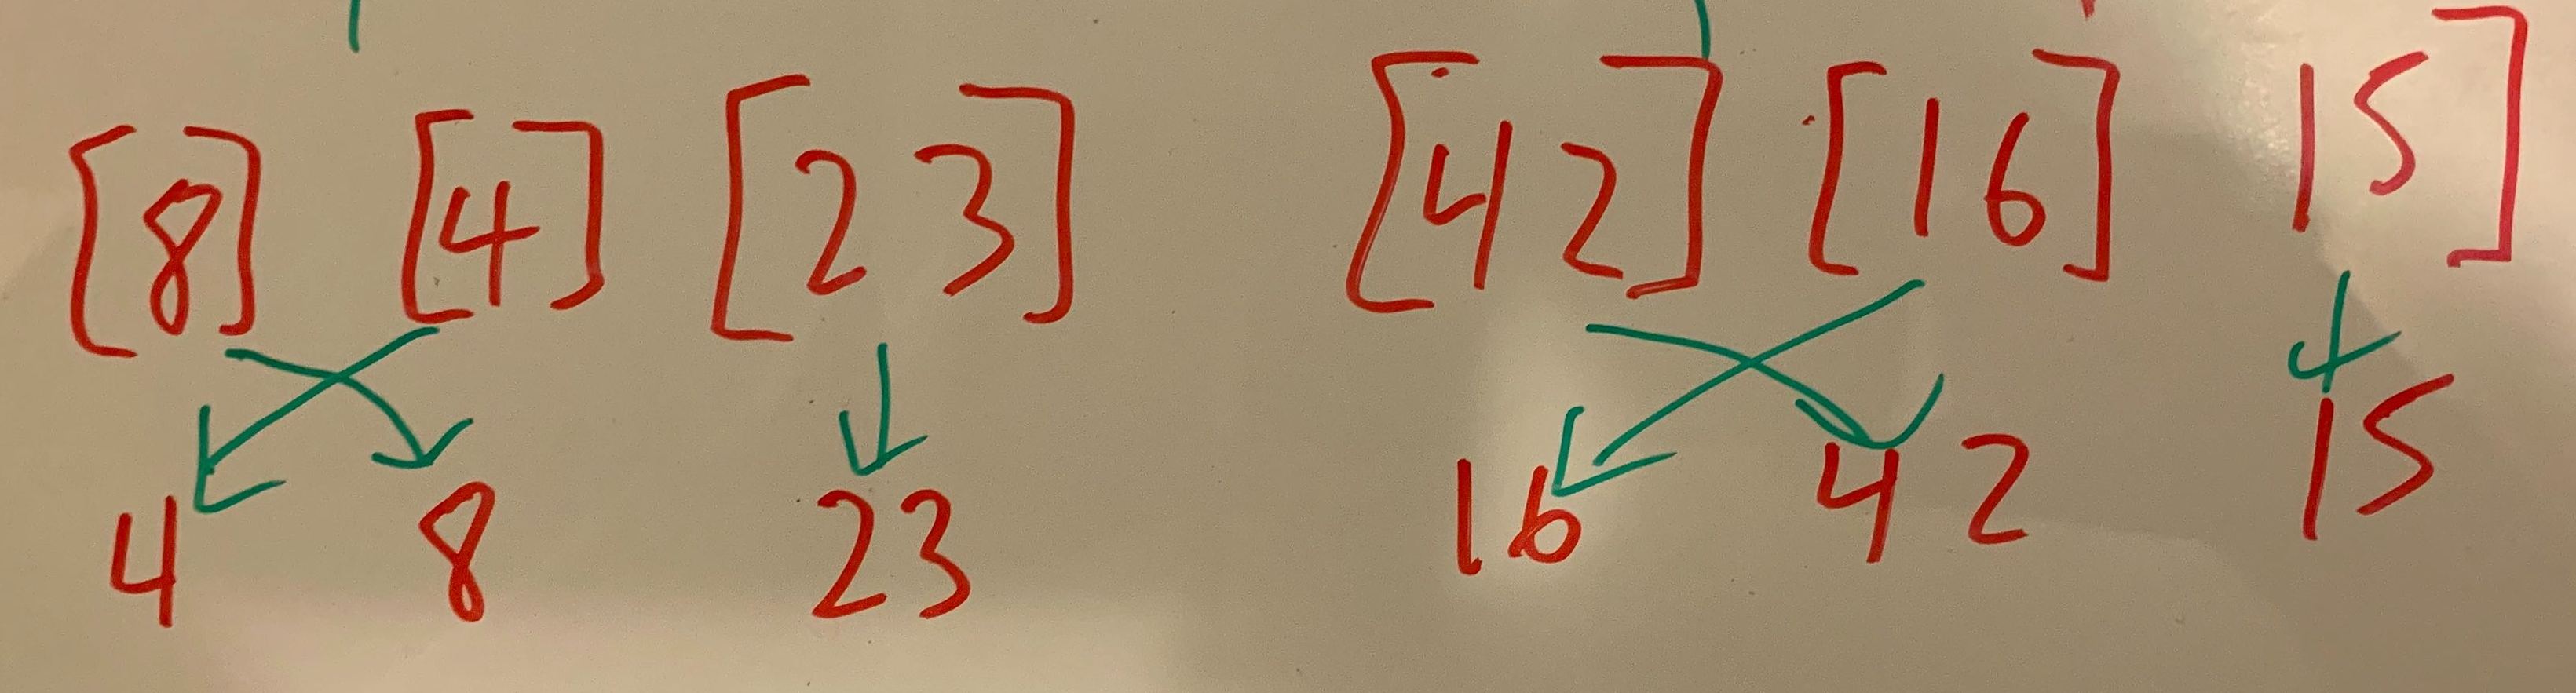 [8] [4] [23] [42] [16] 15]
4 8 23 16 42 15